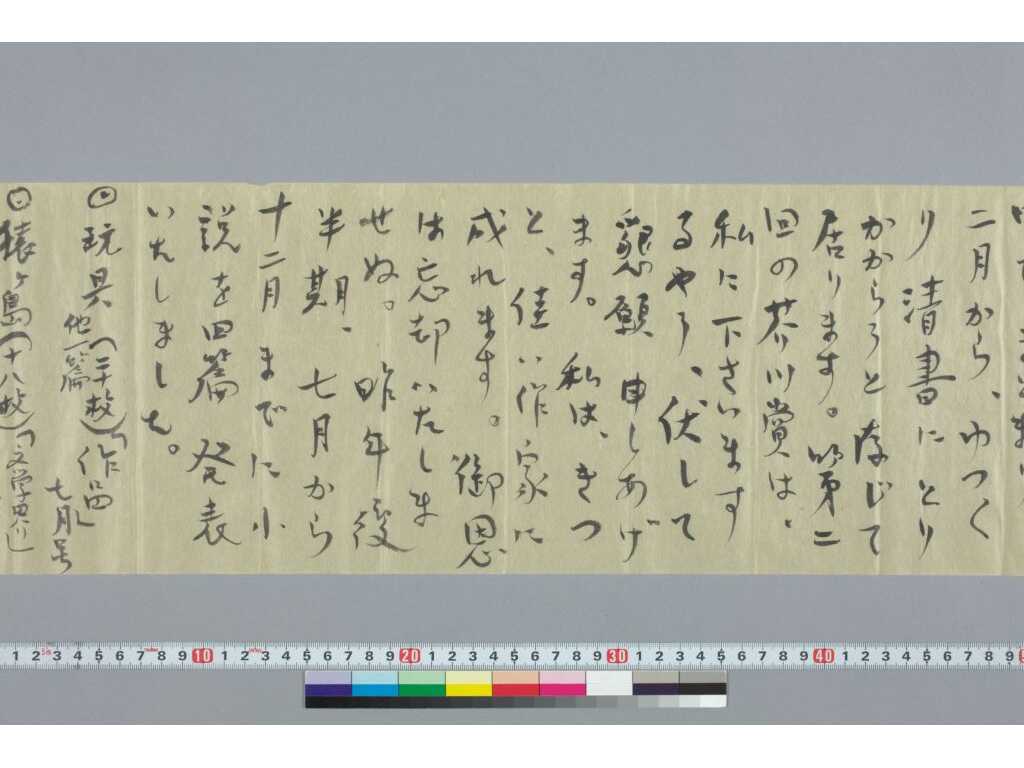 二月から、ゆつく
り 清書にとり
かからうと存じて
居ります。第二
回の芥川賞は、
私に下さいます
るやう、伏して
懇願申しあげ
ます。私は、きつ
と、佳い作家に
成れます。御恩
は忘却いたしま
せぬ。昨年後
半期、七月から
十二月までに小
説を四篇発表
いたしました。
◎玩具(二十枚)「作品」
他一篇 七月号
◎猿ヶ島(十八枚)「文学界」